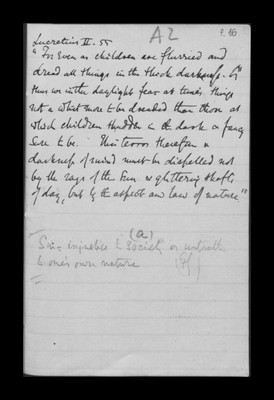 A2
p. 86
Lucretius II. 55
"For Even as children are flurried and
dread all things in the thick darkness,
thus we in the daylight fear at times things
not a whit more to be dreaded than those at
which children shudder in the dark & fancy
sure to be. This terror therefore &
darkness of mind must be dispelled not
by the rays of the sun or glittering shafts
of day, but by the aspect and law of nature"
(a)
Sin = injustice to Society or
to one's own nature